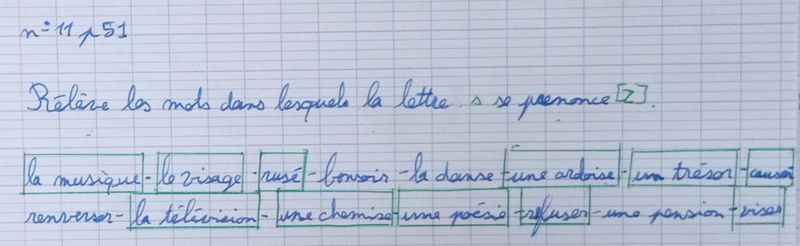 n° 11 p 51
Rélève les mots dans lesquels la lettre s se prononce [z].
la musique - le visage - rusé - bonsoir - la danse - une ardoise - un trésor - causer
renverser - la télévision - une chemise - une poésie - refuser - une pension - viser